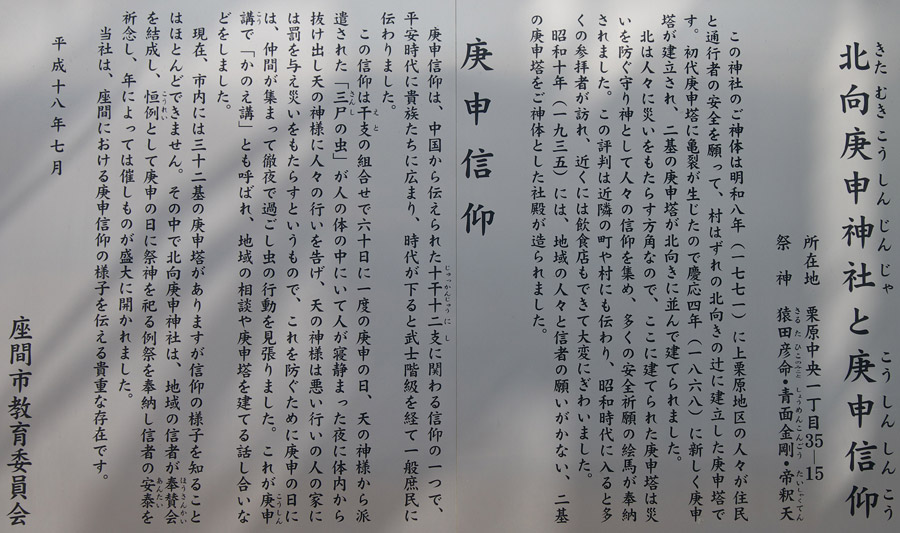 北向庚申神社と庚申信仰
きた むき こう しん じん じゃ こう しん しん こう
所在地 栗原中央一丁目35―15
祭神 猿田彦命・青面金剛・帝釈天
さるたひこのみこと しょうめんこんごう たいしゃくてん
この神社のご神体は明和八年(一七七一)に上栗原地区の人々が住民
と通行者の安全を願って、村はずれの北向きの辻に建立した庚申塔で
す。初代庚申塔に亀裂が生じたので慶応四年(一八六八)に新しく庚申
塔が建立され、二基の庚申塔が北向きに並んで建てられました。
北は人々に災いをもたらす方角なので、ここに建てられた庚申塔は災
いを防ぐ守り神として人々の信仰を集め、多くの安全祈願の絵馬が奉納
されました。この評判は近隣の町や村にも伝わり、昭和時代に入ると多
くの参拝者が訪れ、近くには飲食店もできて大変にぎわいました。
昭和十年(一九三五)には、地域の人々と信者の願いがかない、二基
の庚申塔をご神体とした社殿が造られました。
庚申信仰
庚申信仰は、中国から伝えられた十干十二支に関わる信仰の一つで、
じゅっかんじゅうにし
平安時代に貴族たちに広まり、時代が下ると武士階級を経て一般庶民に
伝わりました。
この信仰は干支の組合せで六十日に一度の庚申の日、天の神様から派
えと
遣された「三尸の虫」が人の体の中にいて人が寝静まった夜に体内から
さんし
抜け出し天の神様に人々の行いを告げ、天の神様は悪い行いの人の家に
は罰を与え災いをもたらすというもので、これを防ぐために庚申の日に
は、仲間が集まって徹夜で過ごし虫の行動を見張りました。これが庚申
こうしん
講で「かのえ講」とも呼ばれ、地域の相談や庚申塔を建てる話し合いな
こう
どをしました。
現在、市内には三十二基の庚申塔がありますが信仰の様子を知ること
はほとんどできません。その中で北向庚申神社は、地域の信者が奉賛会
ほうさんかい
を結成し、恒例として庚申の日に祭神を祀る例祭を奉納し信者の安泰を
こうれい あんたい
祈念し、年によっては催しものが盛大に開かれました。
当社は、座間における庚申信仰の様子を伝える貴重な存在です。
平成十八年七月
座間市教育委員会